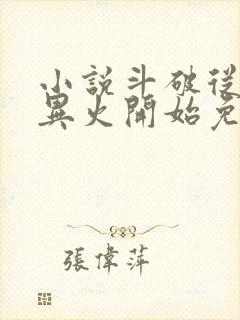 小說斗破從
異火開始免
張偉萍